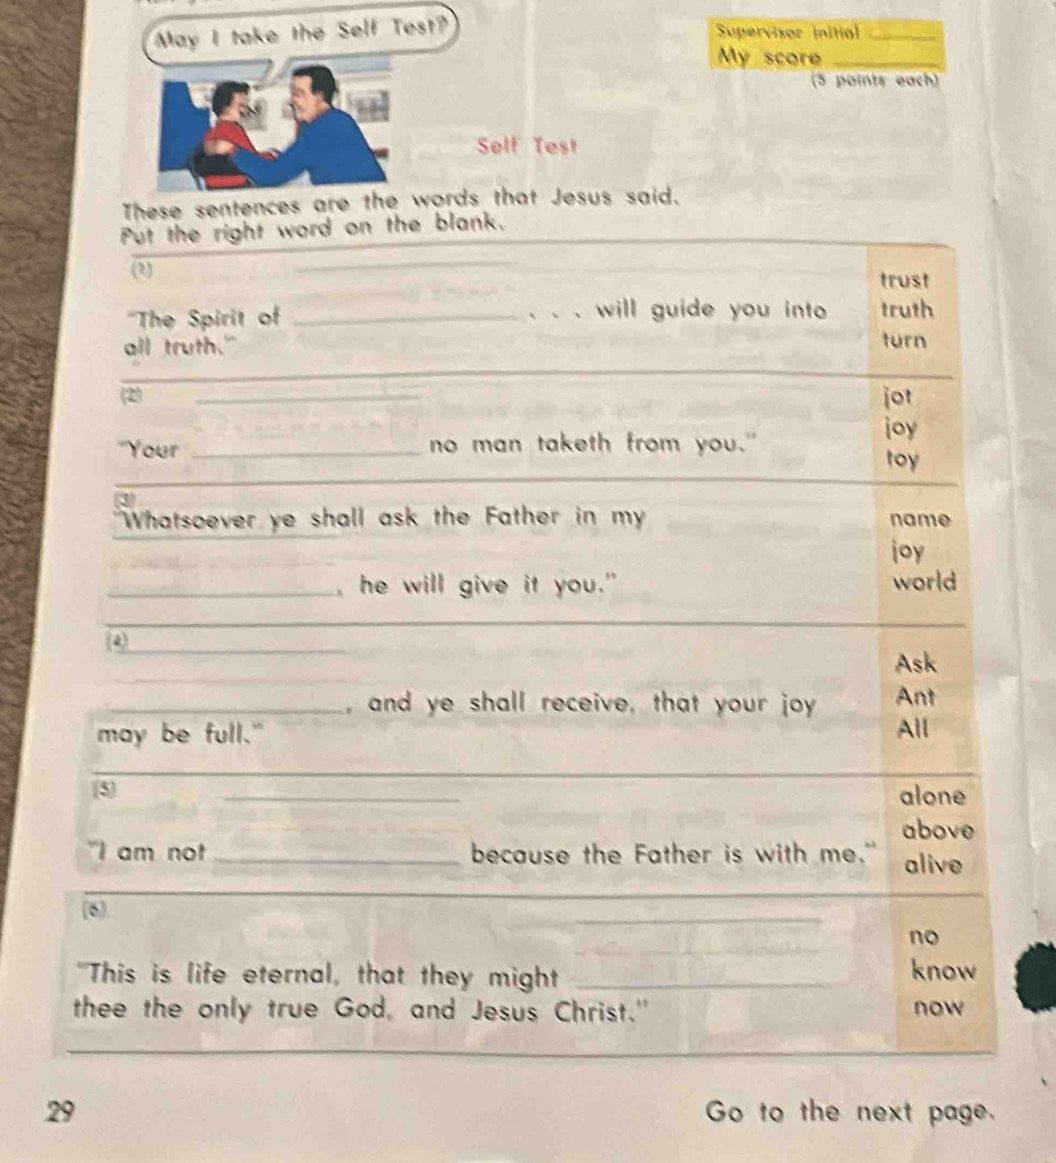 May I take the Self Test?
Supervisor initial
My score
(5 points each)
Self Test
These sentences are the words that Jesus said.
Put the right word on the blank.
(1)
trust
"The Spirit of ______ . . . will guide you into
truth
all truth."
turn
(2)
jot
joy
"Your ______ no man taketh from you."
toy
(3)
"Whatsoever ye shall ask the Father in my
name
joy
______, he will give it you."
world
(4)
Ask
______, and ye shall receive, that your joy
Ant
may be full."
All
(5)
alone
above
"I am not ______ because the Father is with me."
alive
(6)
no
"This is life eternal, that they might ______
know
thee the only true God, and Jesus Christ."
now
29
Go to the next page.